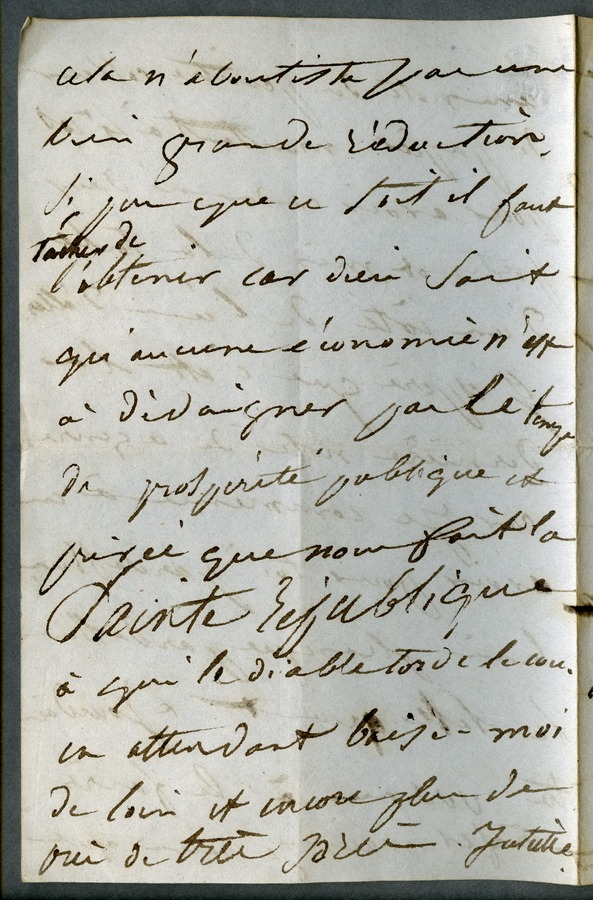 cela n'aboutisse pas à une
bien grande réduction.
Si peu que ce soit il faut
tâcher de
l'obtenir car dieu sait
qu'aucune économie n'est
à dédaigner par le temps
de prospérité publique et
privée que nous fait la
Sainte République
à qui le diable torde le cou.
en attendant baise-moi
de loin et encore plus de
près. Juliette